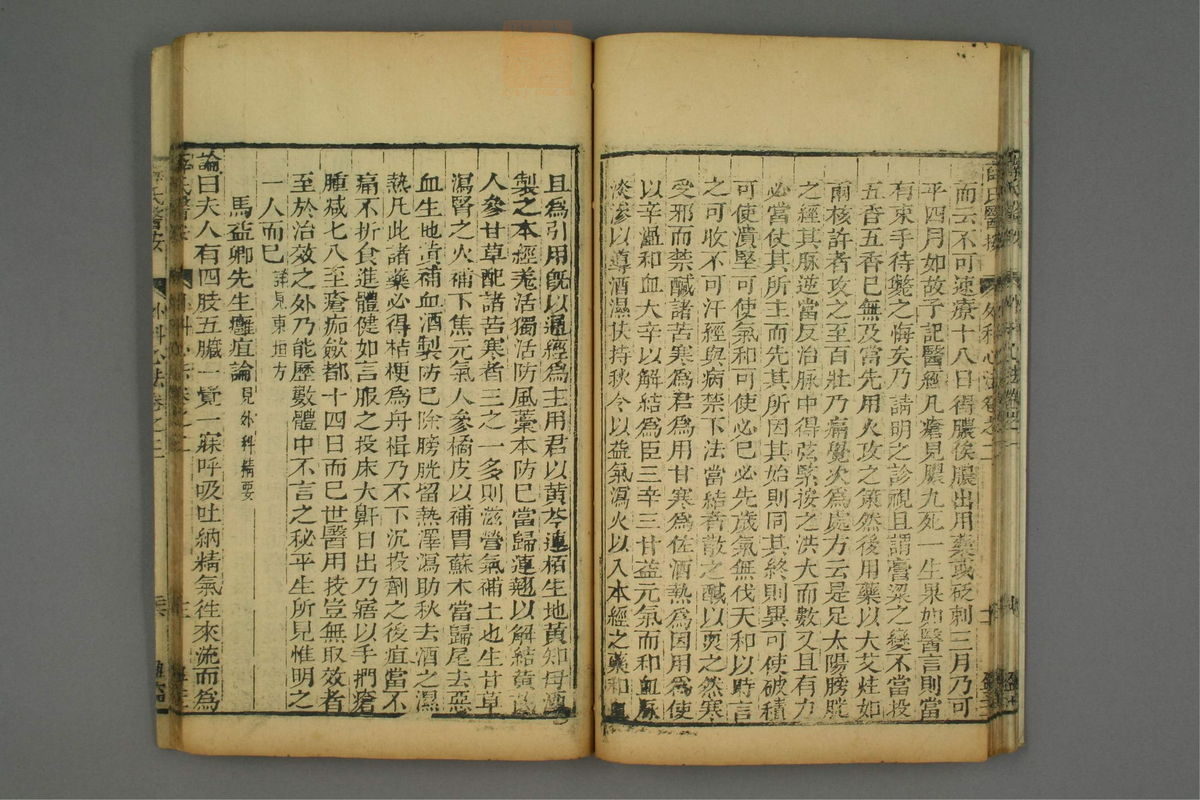 而云不可速療十八日得膿俟膿出用藥或砭刺三月乃可
平四月如故子記醫經凡瘡見膿九死一生果如醫言則當
有束手待斃之悔矣乃請明之診視且謂膏粱之變不當投
五香五香已無及當先用火攻之策然後用藥以大艾炷如
兩核許者攻之至百壯乃痛覺次為處方云是足太陽膀胱
之經其脉逆當反治脉中得弦緊按之洪大而數又且有力
必當伏其所主而先其所因其始則同其終則異可使破積
可使潰堅可使氣和可使必已必先歲氣無伐天和以時言
之可收不可汗經與病禁下法當結者散之鹹以耎之然寒
受邪而禁鹹諸苦寒為君為用甘寒為佐酒熱為因用為使
以辛溫和血大辛以解結為臣三辛三甘益元氣而和血脉
淡滲以導酒濕扶持秋令以益氣瀉火以入本經之藥和血
且為引用既以通經為主用君以黃芩連栢生地黃知母酒
製之本經羗活獨活防風藁本防巳當歸連翹以解結黃芪
人參甘草配諸苦寒者三之一多則滋營氣補土也生甘草
瀉腎之火補下焦元氣人參橘皮以補胃蘇木當歸尾去惡
血生地黃補血酒製防巳除膀胱留熱澤瀉助秋去酒之濕
熱凡此諸藥必得桔梗為舟楫乃不下沉投劑之後疽當不
痛不折食進體健如言服之投床大鼾日出乃寤以手捫瘡
腫減七八至瘡痂斂都十四日而已世醫用技豈無取效者
至於治效之外乃能歷數體中不言之秘平生所見惟明之
一人而已 詳見東垣方
馬益卿先生癰疽論 見外科精要
論曰夫人有四肢五臟一覺一寐呼吸吐納精氣往來流而為